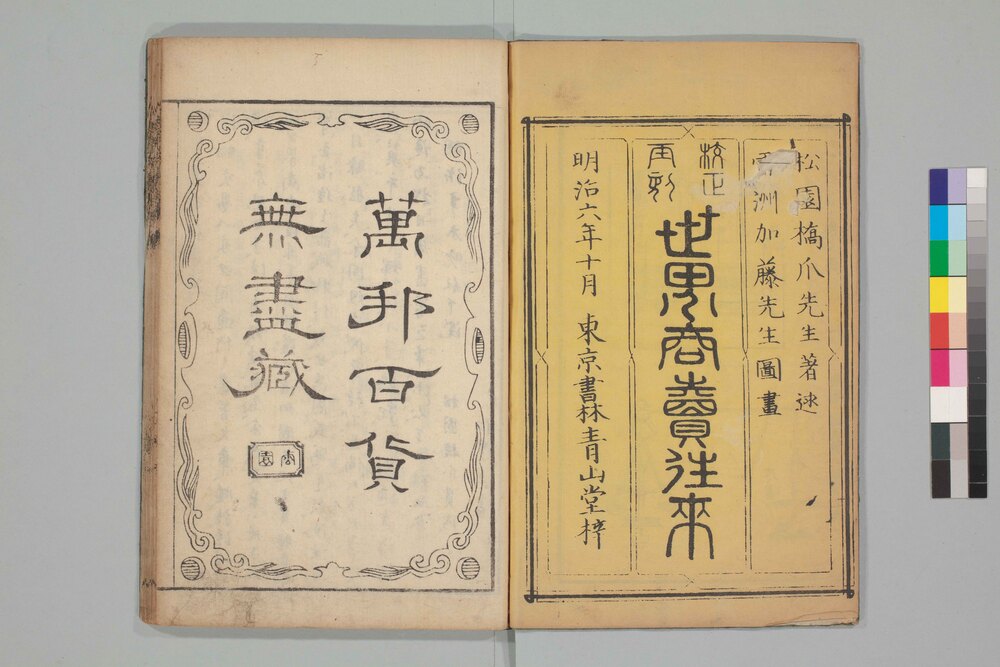 松園橋爪先生著述
洲加藤先生圖畫
校正
再刻
世界商賣往来
明治六年十月 東京書林青山堂梓
萬邦百貨
無盡藏
松園